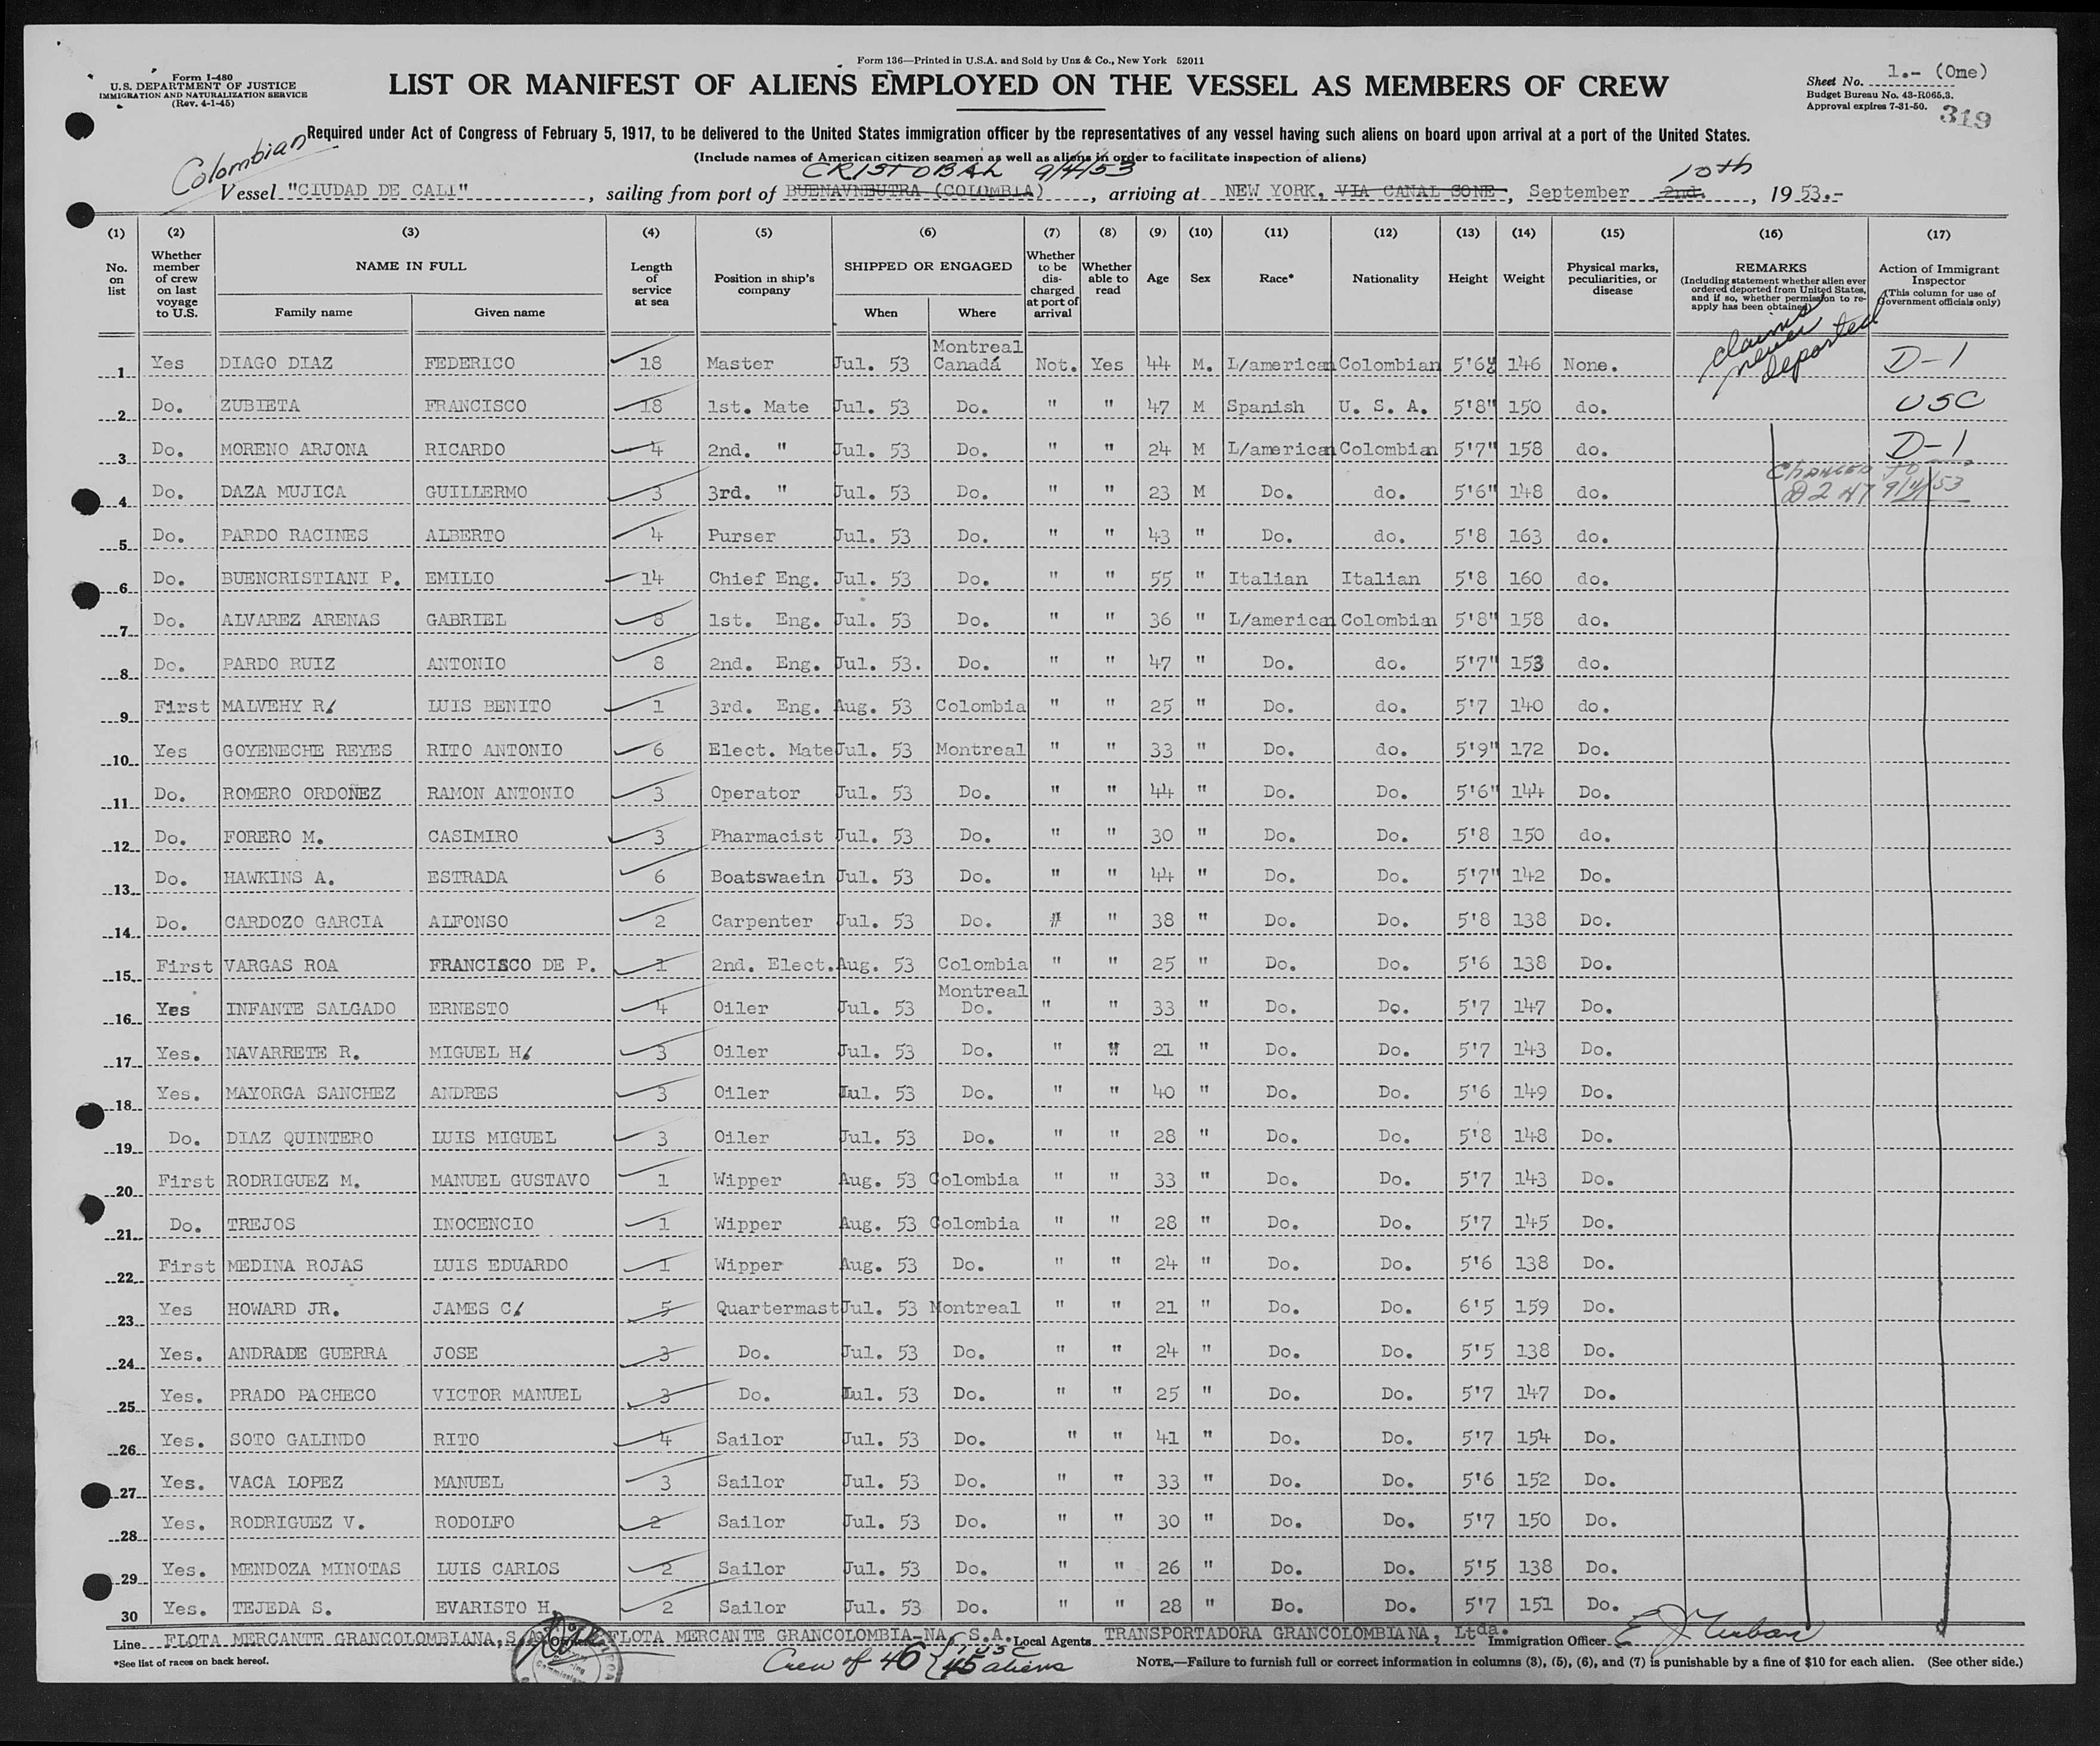 Form 136—Printed in U.S.A. and Sold by Unz & Co., New York 52011
Form I-480
U.S. DEPARTMENT OF JUSTICE
IMMIGRATION AND NATURALIZATION SERVICE
(Rev. 4-1-45)
LIST OR MANIFEST OF ALIENS EMPLOYED ON THE VESSEL AS MEMBERS OF CREW
Sheet No. 1.- (Ome)
Budget Bureau No. 43-R065.3.
Approval expires 7-31-50.
319
Required under Act of Congress of February 5, 1917, to be delivered to the United States immigration officer by the representatives of any vessel having such aliens on board upon arrival at a port of the United States.
(Include names of American citizen seamen as well as aliens in order to facilitate inspection of aliens)
Colombian CRISTOBAL 9/4/53 10th
Vessel "CIUDAD DE CALI", sailing from port of BUENAVNEUTRA (COLOMBIA), arriving at NEW YORK, VIA CANAL SONE, September 2nd., 1953.-
(1) (2) (3) (4) (5) (6) (7) (8) (9) (10) (11) (12) (13) (14) (15) (16) (17)
No. on list
Whether member of crew on last voyage to U.S.
NAME IN FULL
Family name Given name
Length of service at sea
Position in ship's company
SHIPPED OR ENGAGED
When Where
Whether to be discharged at port of arrival
Whether able to read
Age Sex Race* Nationality Height Weight
Physical marks, peculiarities, or disease
REMARKS
(Including statement whether alien ever ordered deported from United States, and if so, whether permission to re-apply has been obtained)
Action of Immigrant Inspector
(This column for use of Government officials only)
claims never deported
1 Yes DIAGO DIAZ FEDERICO 18 Master Jul. 53 Montreal Canadá Not. Yes 44 M. L/american Colombian 5'6½ 146 None. D-1
2 Do. ZUBIETA FRANCISCO 18 1st. Mate Jul. 53 Do. " " 47 M Spanish U. S. A. 5'8" 150 do. USC
3 Do. MORENO ARJONA RICARDO 4 2nd. " Jul. 53 Do. " " 24 M L/american Colombian 5'7" 158 do. D-1
Changed to
D2 9/4/53
4 Do. DAZA MUJICA GUILLERMO 3 3rd. " Jul. 53 Do. " " 23 M Do. do. 5'6" 148 do.
5 Do. PARDO RACINES ALBERTO 4 Purser Jul. 53 Do. " " 43 " Do. do. 5'8 163 do.
6 Do. BUENCRISTIANI P. EMILIO 14 Chief Eng. Jul. 53 Do. " " 55 " Italian Italian 5'8 160 do.
7 Do. ALVAREZ ARENAS GABRIEL 8 1st. Eng. Jul. 53 Do. " " 36 " L/american Colombian 5'8" 158 do.
8 Do. PARDO RUIZ ANTONIO 8 2nd. Eng. Jul. 53. Do. " " 47 " Do. do. 5'7" 153 do.
9 First MALVEHY R. LUIS BENITO 1 3rd. Eng. Aug. 53 Colombia " " 25 " Do. do. 5'7 140 do.
10 Yes GOYENECHE REYES RITO ANTONIO 6 Elect. Mate Jul. 53 Montreal " " 33 " Do. do. 5'9" 172 Do.
11 Do. ROMERO ORDOÑEZ RAMON ANTONIO 3 Operator Jul. 53 Do. " " 44 " Do. Do. 5'6" 144 Do.
12 Do. FORERO M. CASIMIRO 3 Pharmacist Jul. 53 Do. " " 30 " Do. Do. 5'8 150 do.
13 Do. HAWKINS A. ESTRADA 6 Boatswaein Jul. 53 Do. " " 44 " Do. Do. 5'7" 142 Do.
14 Do. CARDOZO GARCIA ALFONSO 2 Carpenter Jul. 53 Do. " " 38 " Do. Do. 5'8 138 Do.
15 First VARGAS ROA FRANCISCO DE P. 1 2nd. Elect. Aug. 53 Colombia " " 25 " Do. Do. 5'6 138 Do.
16 Yes INFANTE SALGADO ERNESTO 4 Oiler Jul. 53 Montreal Do. " " 33 " Do. Do. 5'7 147 Do.
17 Yes. NAVARRETE R. MIGUEL H. 3 Oiler Jul. 53 Do. " " 21 " Do. Do. 5'7 143 Do.
18 Yes. MAYORGA SANCHEZ ANDRES 3 Oiler Jul. 53 Do. " " 40 " Do. Do. 5'6 149 Do.
19 Do. DIAZ QUINTERO LUIS MIGUEL 3 Oiler Jul. 53 Do. " " 28 " Do. Do. 5'8 148 Do.
20 First RODRIGUEZ M. MANUEL GUSTAVO 1 Wipper Aug. 53 Colombia " " 33 " Do. Do. 5'7 143 Do.
21 Do. TREJOS INOCENCIO 1 Wipper Aug. 53 Colombia " " 28 " Do. Do. 5'7 145 Do.
22 First MEDINA ROJAS LUIS EDUARDO 1 Wipper Aug. 53 Do. " " 24 " Do. Do. 5'6 138 Do.
23 Yes HOWARD JR. JAMES C. 5 Quartermast Jul. 53 Montreal " " 21 " Do. Do. 6'5 159 Do.
24 Yes. ANDRADE GUERRA JOSE 3 Do. Jul. 53 Do. " " 24 " Do. Do. 5'5 138 Do.
25 Yes. PRADO PACHECO VICTOR MANUEL 3 Do. Jul. 53 Do. " " 25 " Do. Do. 5'7 147 Do.
26 Yes. SOTO GALINDO RITO 4 Sailor Jul. 53 Do. " " 41 " Do. Do. 5'7 154 Do.
27 Yes. VACA LOPEZ MANUEL 3 Sailor Jul. 53 Do. " " 33 " Do. Do. 5'6 152 Do.
28 Yes. RODRIGUEZ V. RODOLFO 2 Sailor Jul. 53 Do. " " 30 " Do. Do. 5'7 150 Do.
29 Yes. MENDOZA MINOTAS LUIS CARLOS 2 Sailor Jul. 53 Do. " " 26 " Do. Do. 5'5 138 Do.
30 Yes. TEJEDA S. EVARISTO H. 2 Sailor Jul. 53 Do. " " 28 " Do. Do. 5'7 151 Do.
Line FLOTA MERCANTE GRANCOLOMBIANA, S.A. Owners FLOTA MERCANTE GRANCOLOMBIA-NA, S.A. Local Agents TRANSPORTADORA GRANCOLOMBIANA, Ltda. Immigration Officer
*See list of races on back hereof.
Crew of 46 { 1 USC 45 aliens
NOTE.—Failure to furnish full or correct information in columns (3), (5), (6), and (7) is punishable by a fine of $10 for each alien. (See other side.)